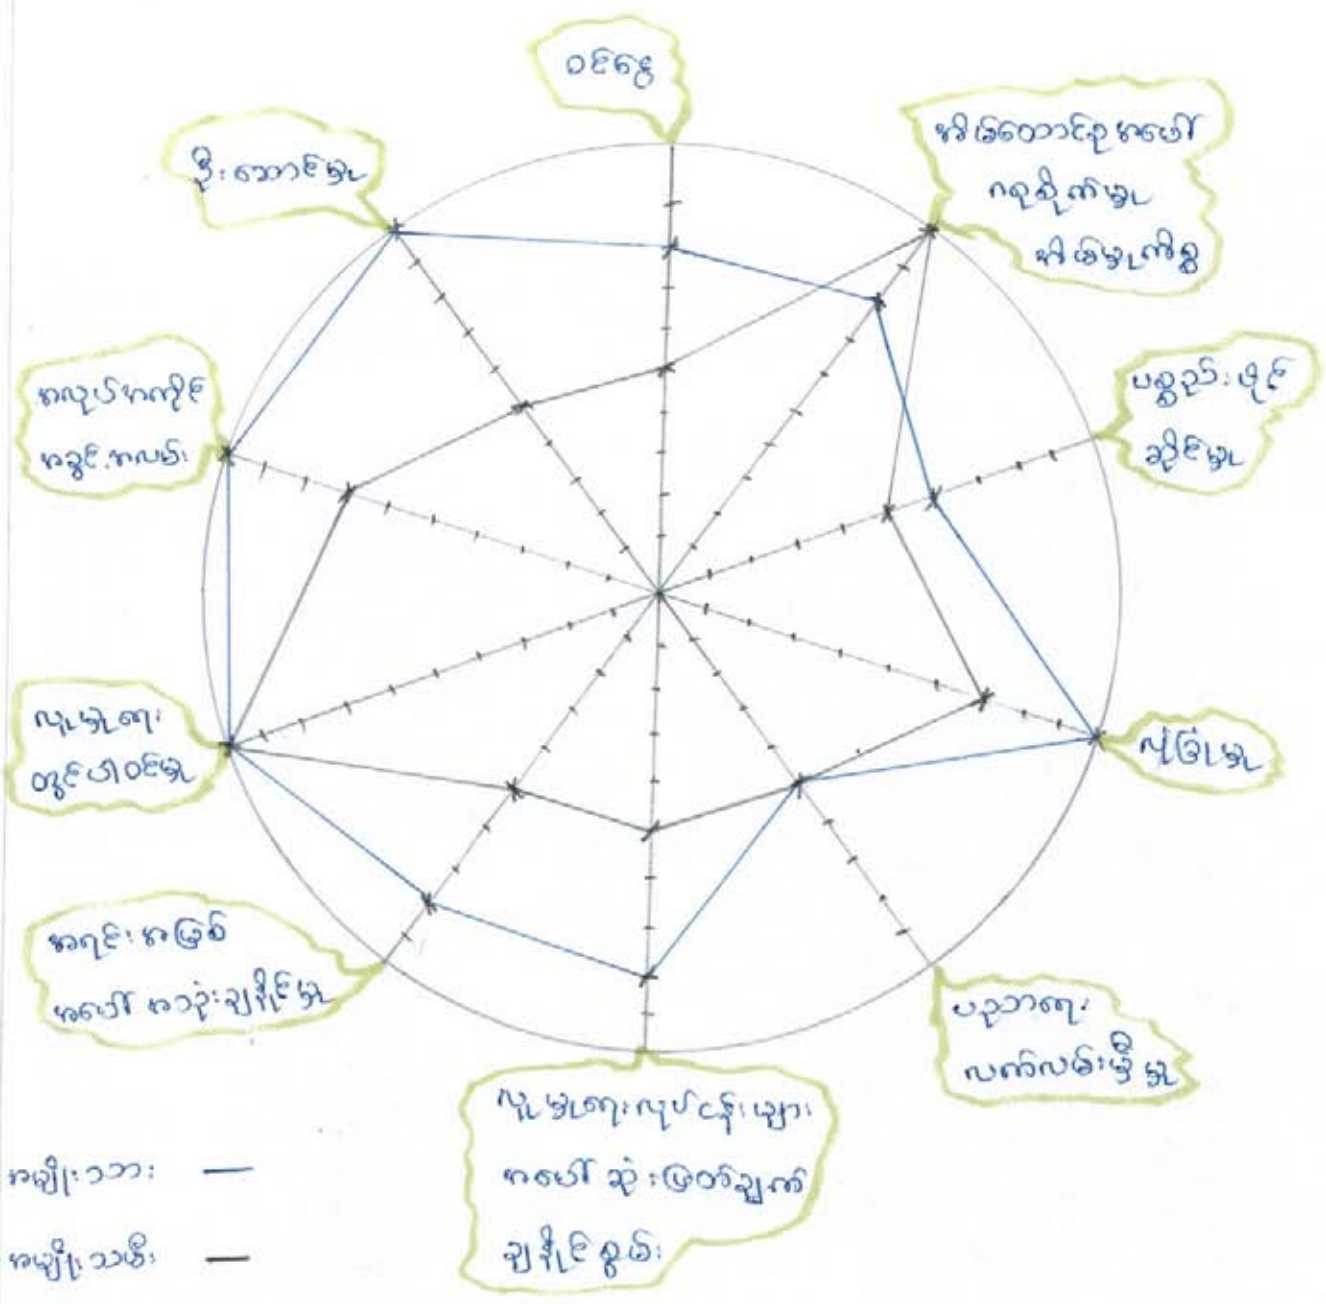 ဝင်ငွေ
အိမ်ထောင်စု အပေါ်
ဂရုစိုက်မှု
အိမ်မှုကိစ္စ
ပစ္စည်းပိုင်
ဆိုင်မှု
လုံခြုံမှု
ပညာရေး
လက်လမ်းမှီမှု
လူမှုရေးလုပ်ငန်းများ
အပေါ် ဆုံးဖြတ်ချက်
ချနိုင်စွမ်း
အရင်းအမြစ်
အပေါ် အသုံးချနိုင်မှု
လူမှုရေး
တွင်ပါဝင်မှု
အလုပ်အကိုင်
အခွင့်အလမ်း
ဦးဆောင်မှု
အမျိုးသား
အမျိုးသမီး